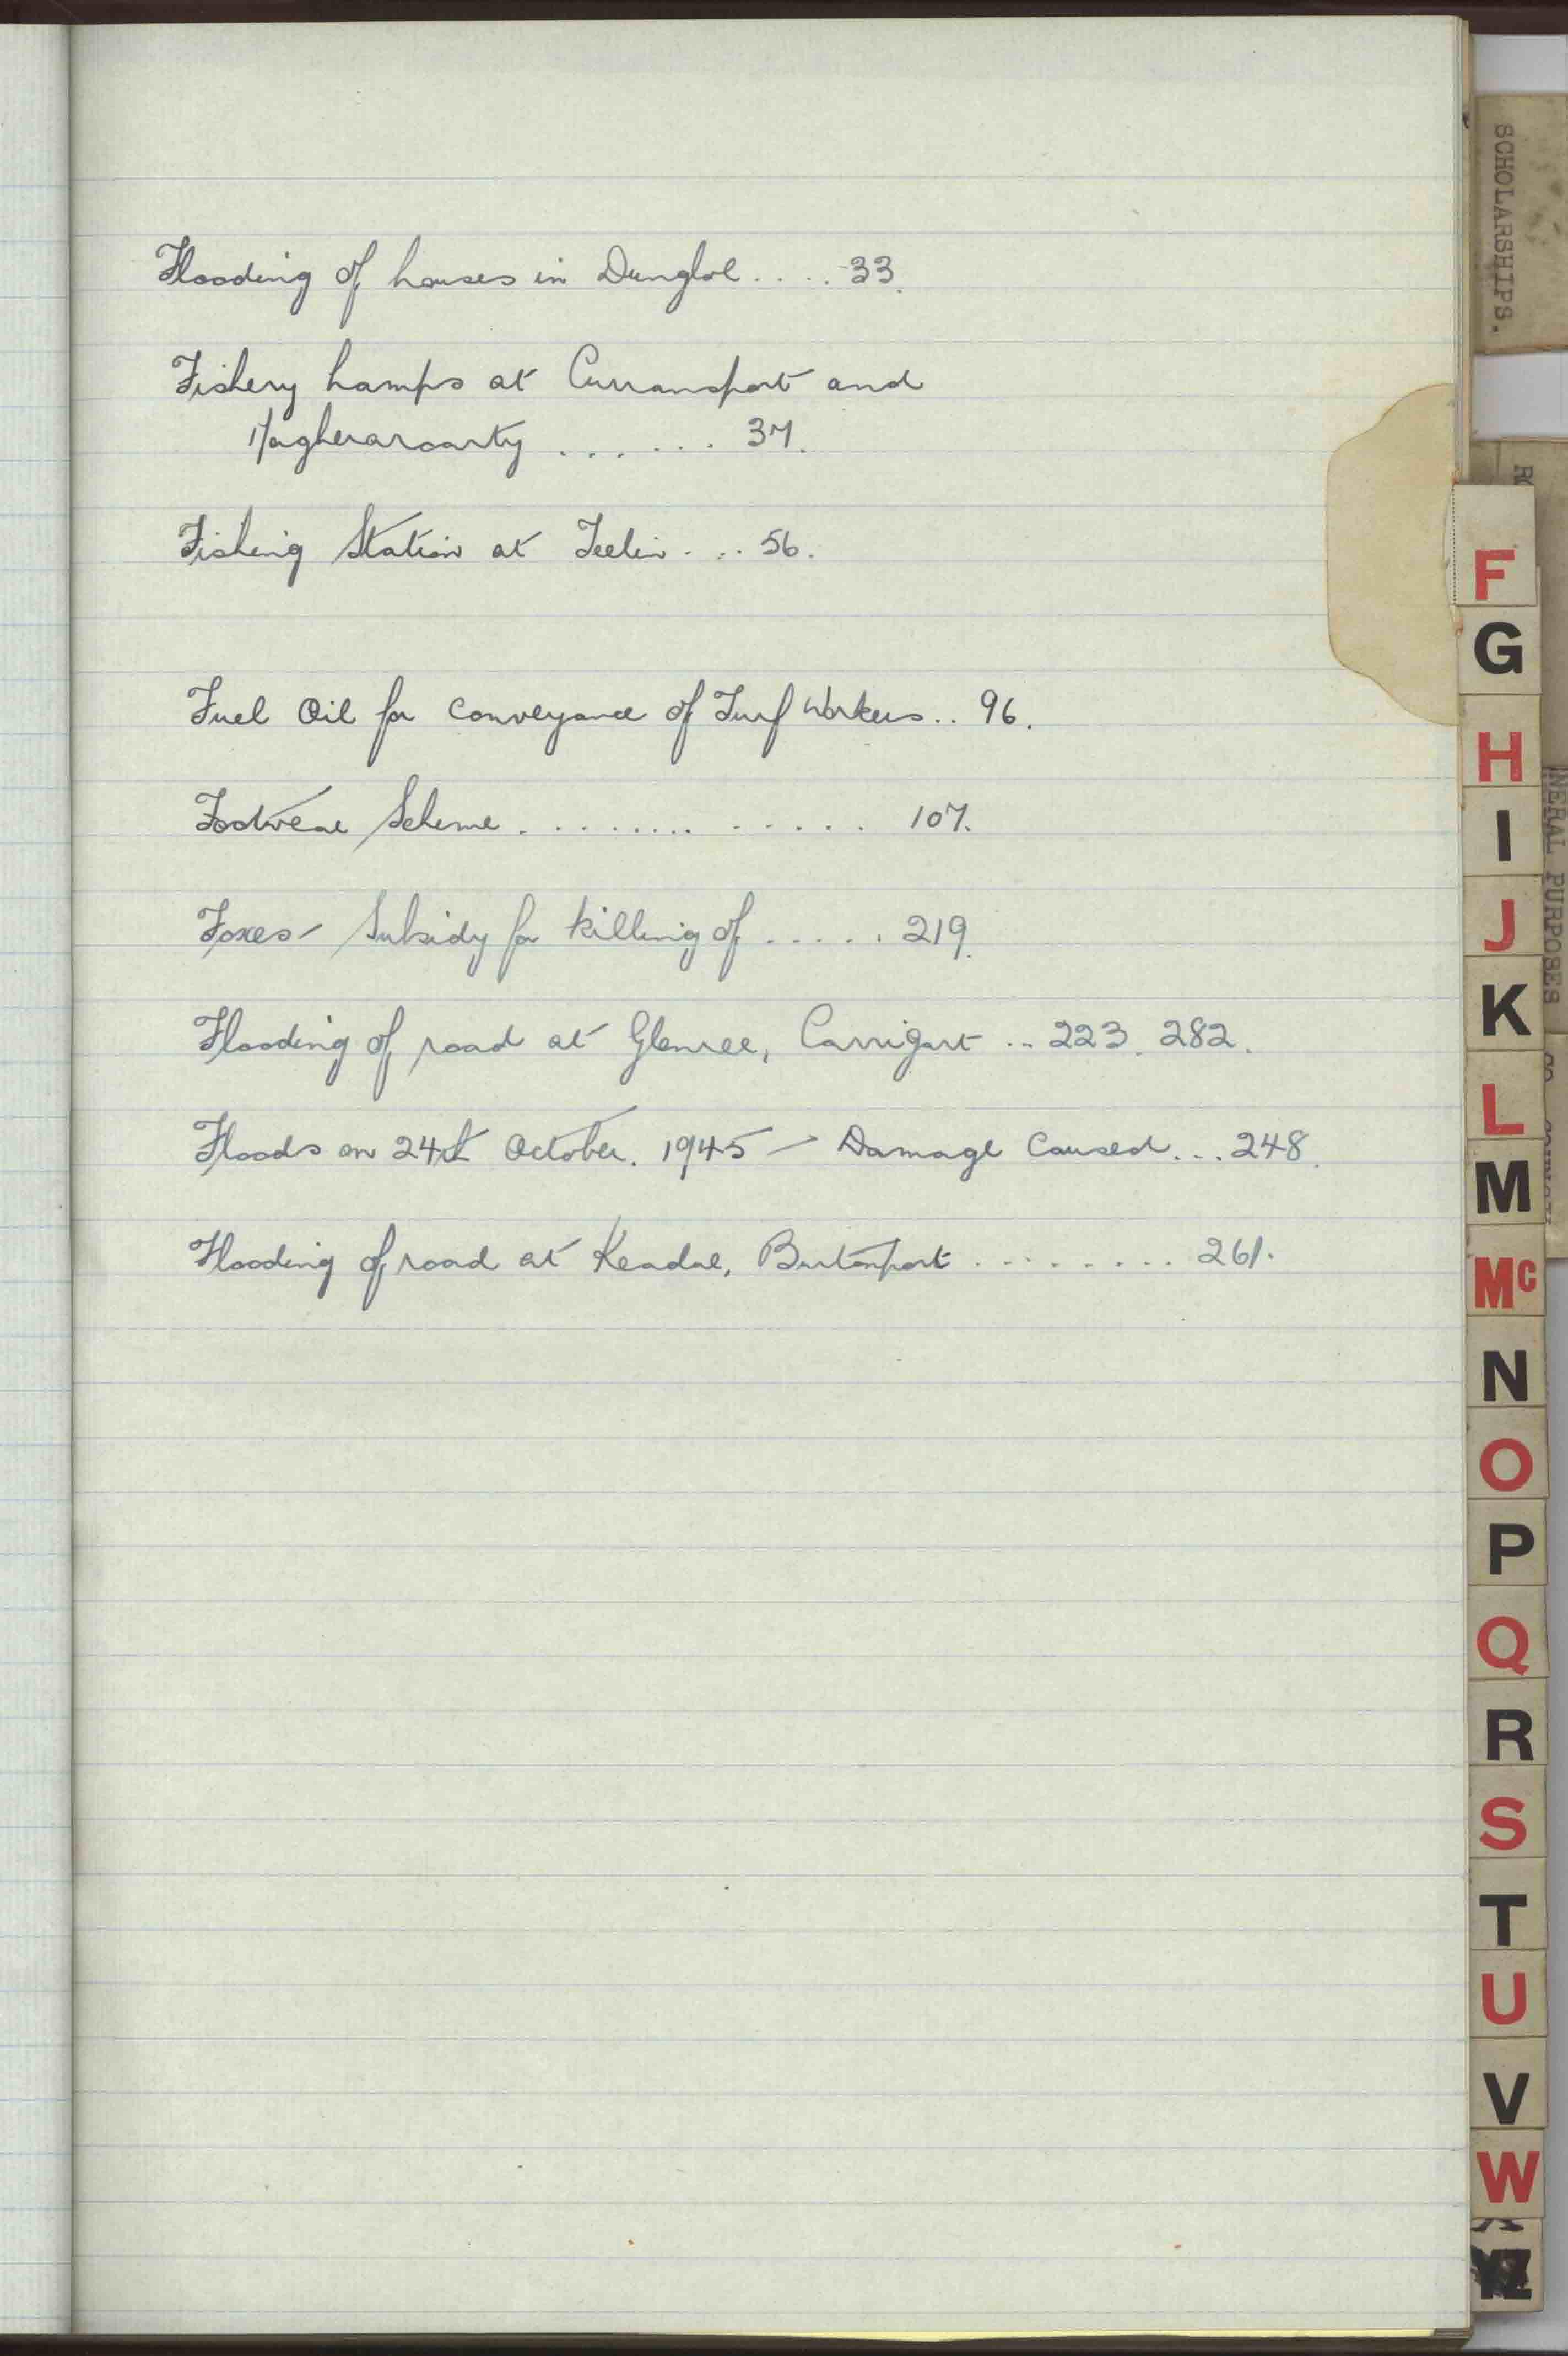 Flooding of houses in Dungloe..... 33.
Fishery Lamps at Curransport and
Magheraroarty ....... 37.
Fishing Station at Teelin.... 56.
Fuel Oil for Conveyance of Turf Workers.. 96.
Footwear Scheme.............. 107.
Foxes - Subsidy for killing of ..... 219.
Flooding of road at Glenree, Carrigart ... 223. 282.
Floods on 24th October. 1945 - Damage Caused... 248.
Flooding of road at Keadue, Burtonport ......... 261.
SCHOLARSHIPS.
F
G
H
I
J
K
L
M
Mc
N
O
P
Q
R
S
T
U
V
W
YZ
NERAL PURPOSES